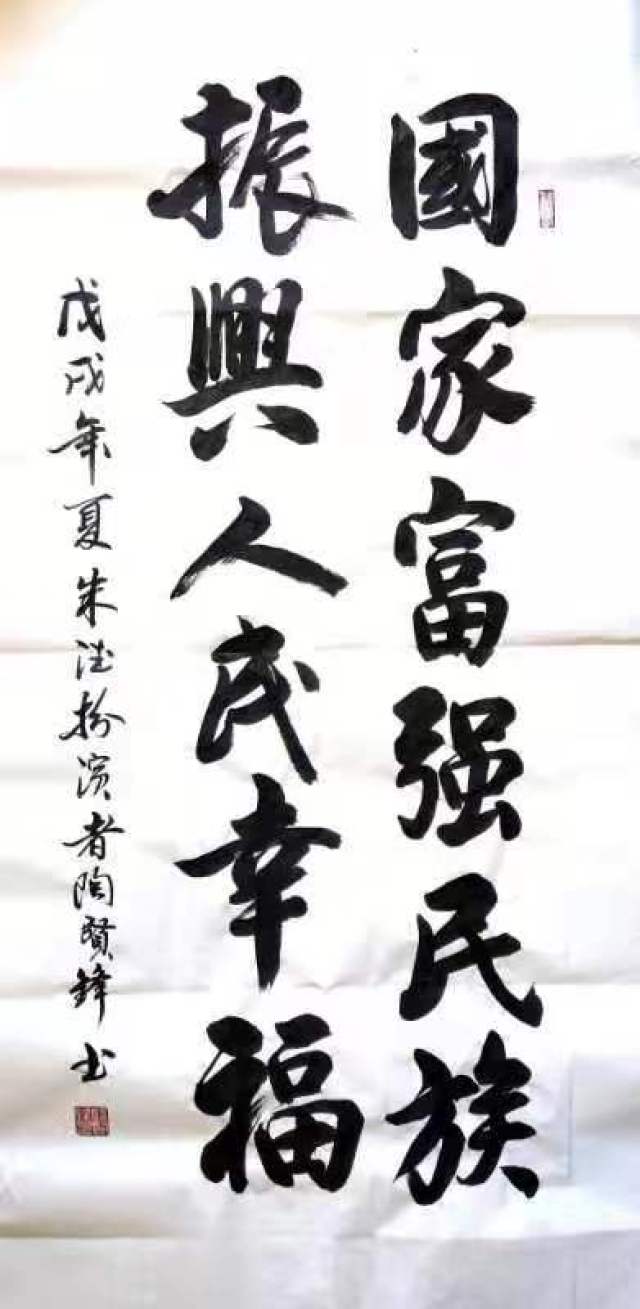 國家富强民族
振興人民幸福
戊戌年夏朱德扮演者陶賢鋒书